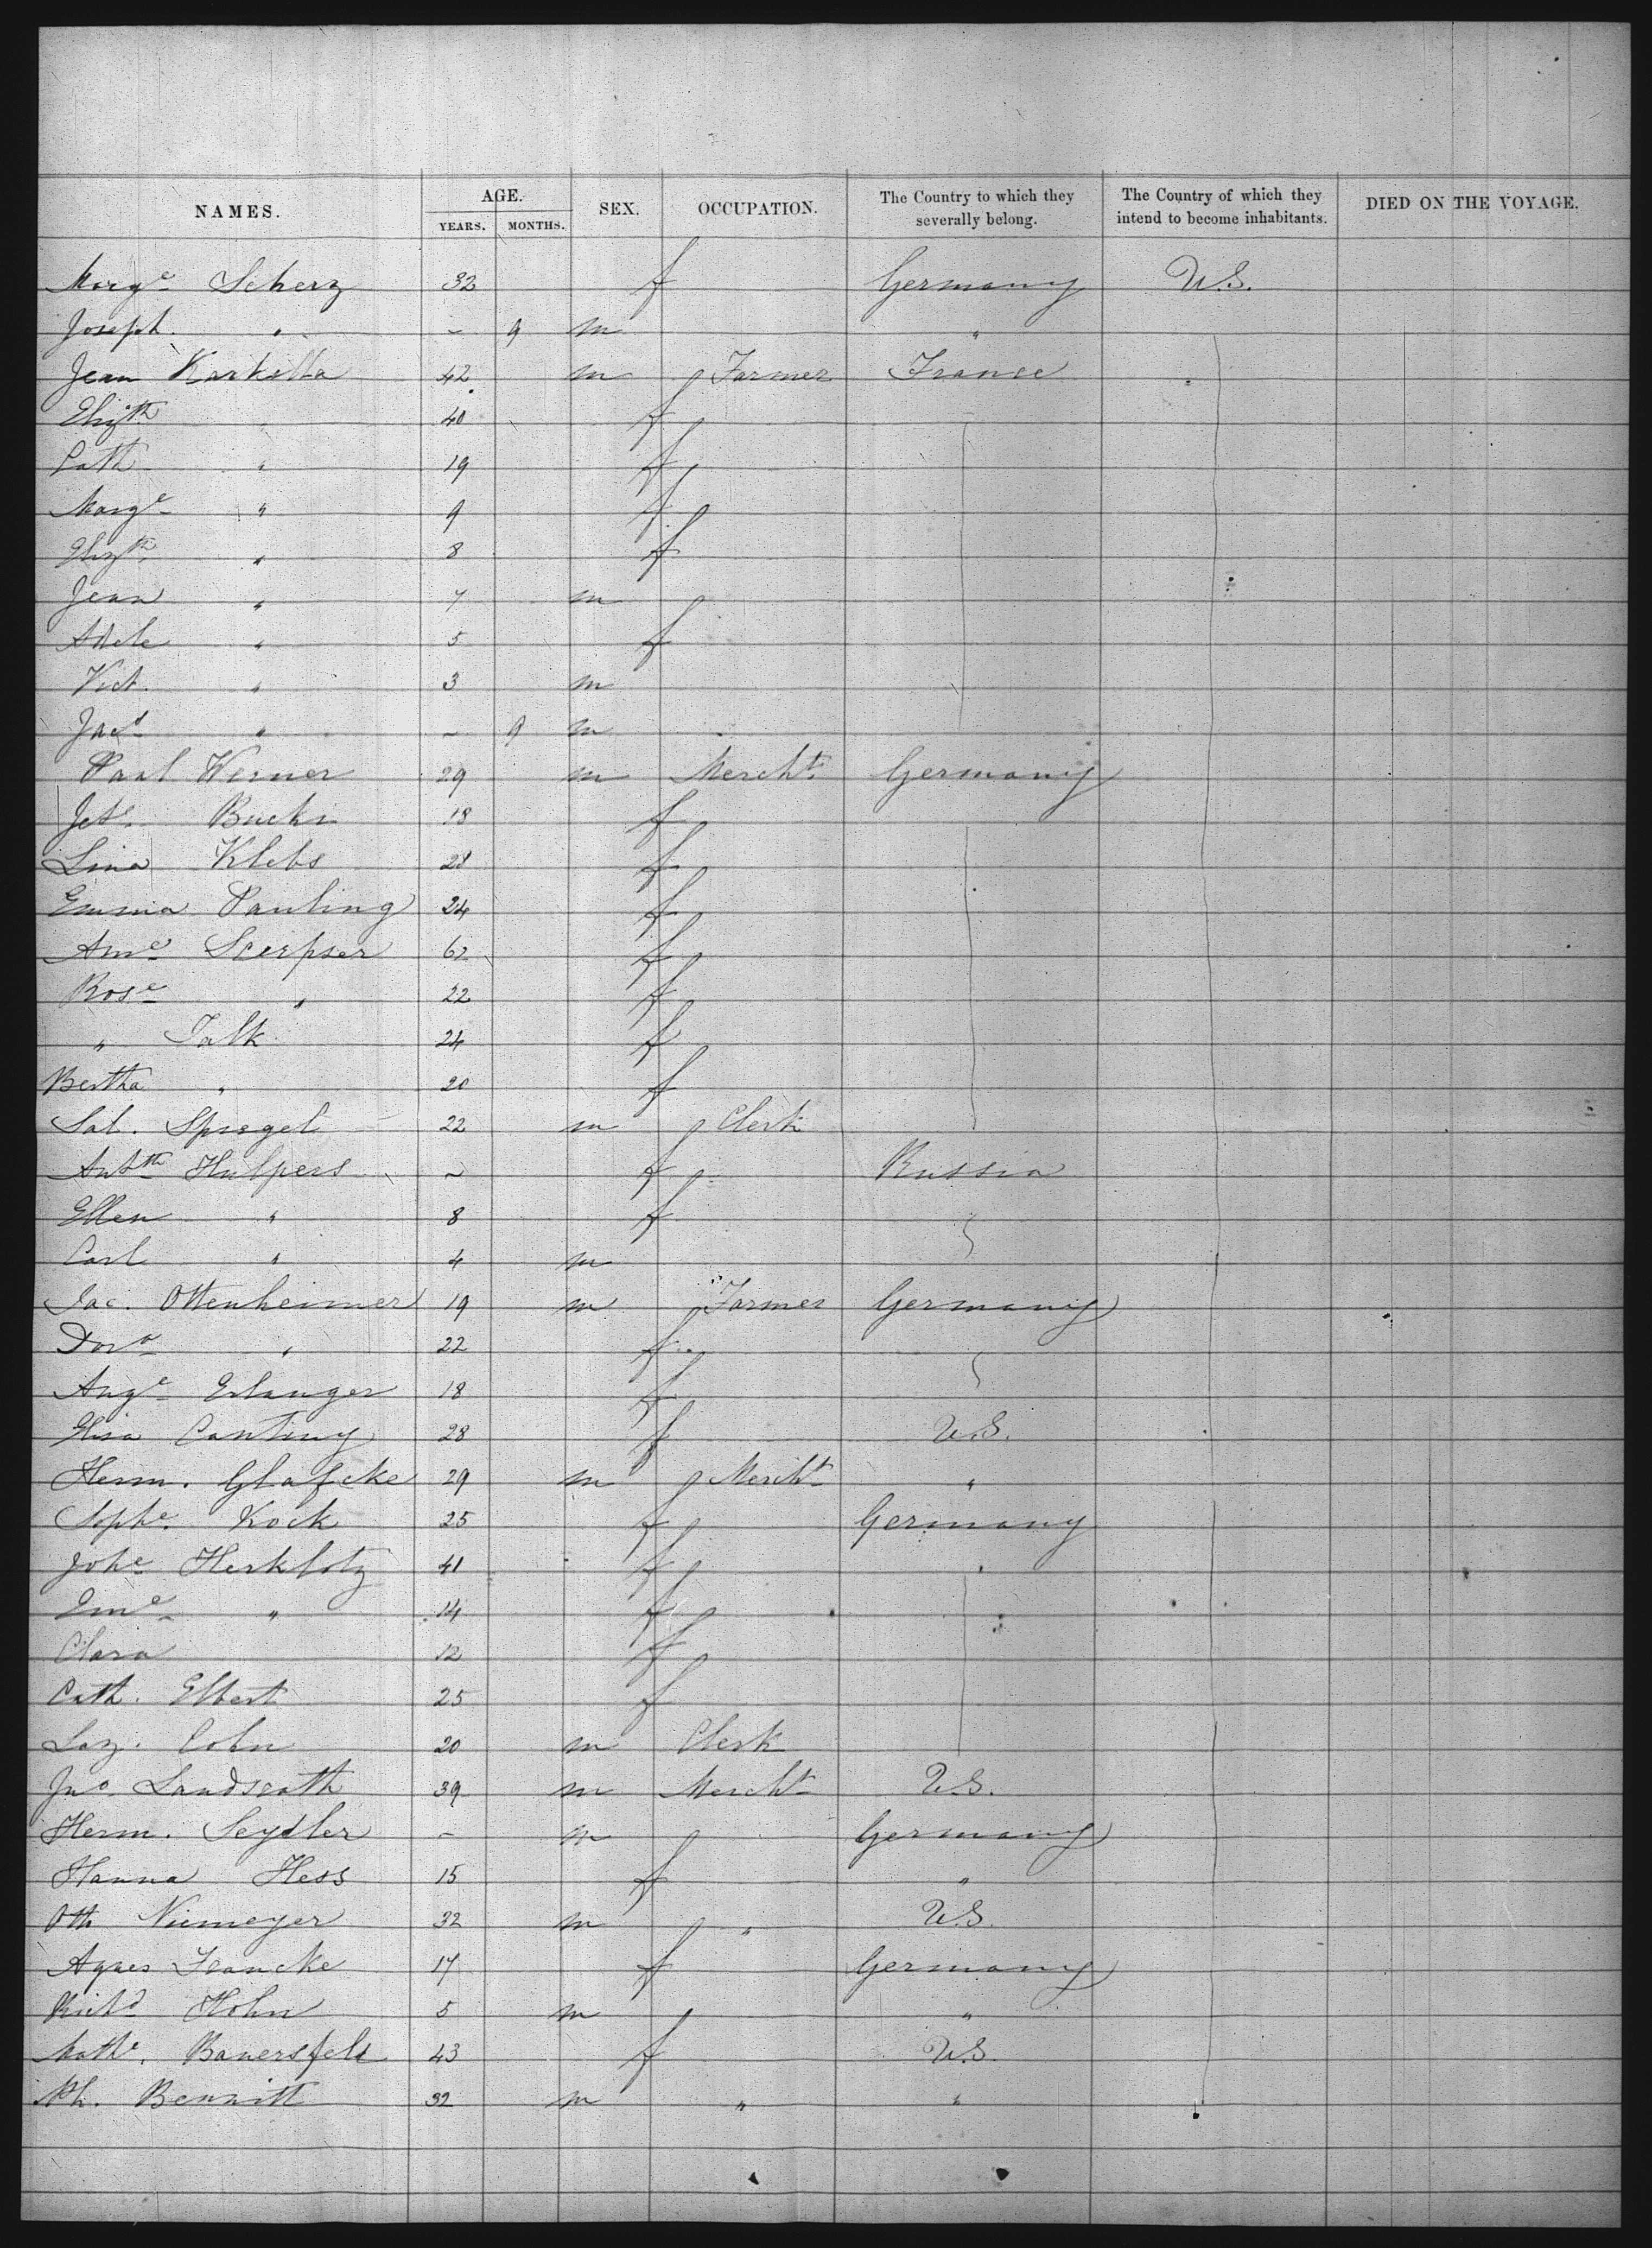 NAMES. AGE. SEX. OCCUPATION. The Country to which they severally belong. The Country of which they intend to become inhabitants. DIED ON THE VOYAGE.
YEARS. MONTHS.
Marge Scherz 32 f Germany U.S.
Joseph " - 9 m "
Jean 42 m Farmer France
Elizth " 40 f
Cath " 19 f
Marge " 9 f
Elizth " 8 f
Jean " 7 m
Adele " 5 f
Vict. " 3 m
" - 9 m
Paul Werner 29 m Mercht Germany
Buchi 18 f
Lina Klebs 28 f
Emma Pauling 24 f
Ame 62 f
Rose " 22 f
" Falk 24 f
Bertha " 20 f
Sal. Spiegel 22 m Clerk
Hulpers - f Russia
Ellen " 8 f
Carl " 4 m
Jac. Ottenheimer 19 m Farmer Germany
Dora " 22 f
Auge Erlanger 18 f
Elisa Cantiny 28 f U.S.
Herm. Glafcke 29 m Mercht "
Sophe. Kock 25 f Germany
Johe Herklotz 41 f
Eme " 14 f
Clara 12 f
Cath. Elbert 25 f
Laz. Cohn 20 m Clerk
Jno Landsrath 39 m Mercht U.S.
Herm. Seydler - m Germany
Hanna Hess 15 f "
Otto Niemeyer 32 m " U.S.
Agnes Francke 17 f Germany
Richd Hohn 5 m "
Mathe. Bauersfeld 43 f U.S.
Ph. Bennitt 32 m " "